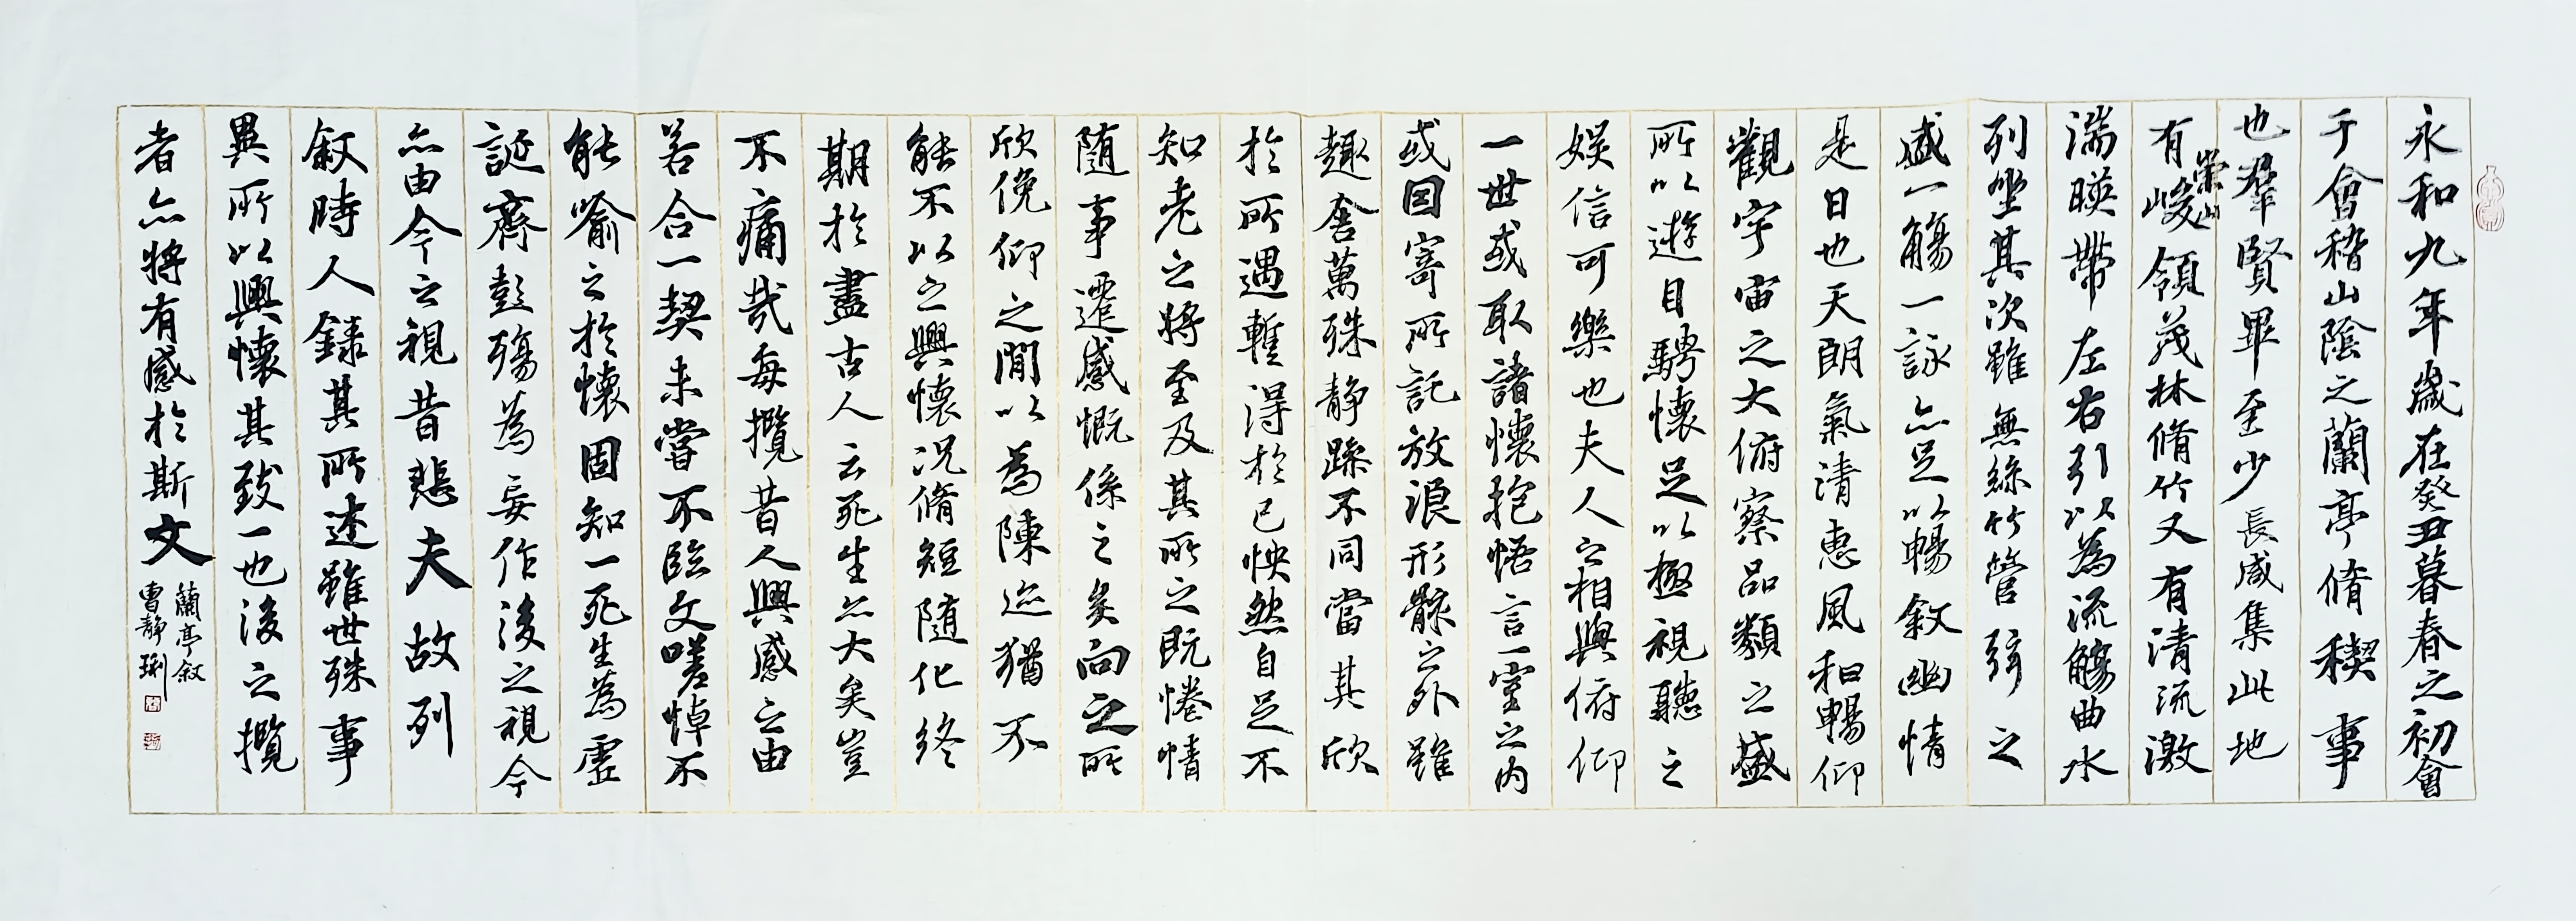 永和九年歲在癸丑暮春之初會
于會稽山陰之蘭亭脩稧事
也羣賢畢至少長咸集此地
有崇山峻領茂林脩竹又有清流激
湍暎帶左右引以為流觴曲水
列坐其次雖無絲竹管弦之
盛一觴一詠亦足以暢敘幽情
是日也天朗氣清惠風和暢仰
觀宇宙之大俯察品類之盛
所以遊目騁懷足以極視聽之
娛信可樂也夫人之相與俯仰
一世或取諸懷抱悟言一室之内
或因寄所託放浪形骸之外雖
趣舍萬殊静躁不同當其欣
於所遇暫得於己怏然自足不
知老之將至及其所之既惓情
随事遷感慨係之矣向之所
欣俛仰之間以為陳迹猶不
能不以之興懷况脩短随化終
期於盡古人云死生亦大矣豈
不痛哉每攬昔人興感之由
若合一契未嘗不臨文嗟悼不
能喻之於懷固知一死生為虛
誕齊彭殤為妄作後之視今
亦由今之視昔悲夫故列
敘時人錄其所述雖世殊事
異所以興懷其致一也後之攬
者亦將有感於斯文
蘭亭敘
曹静琍